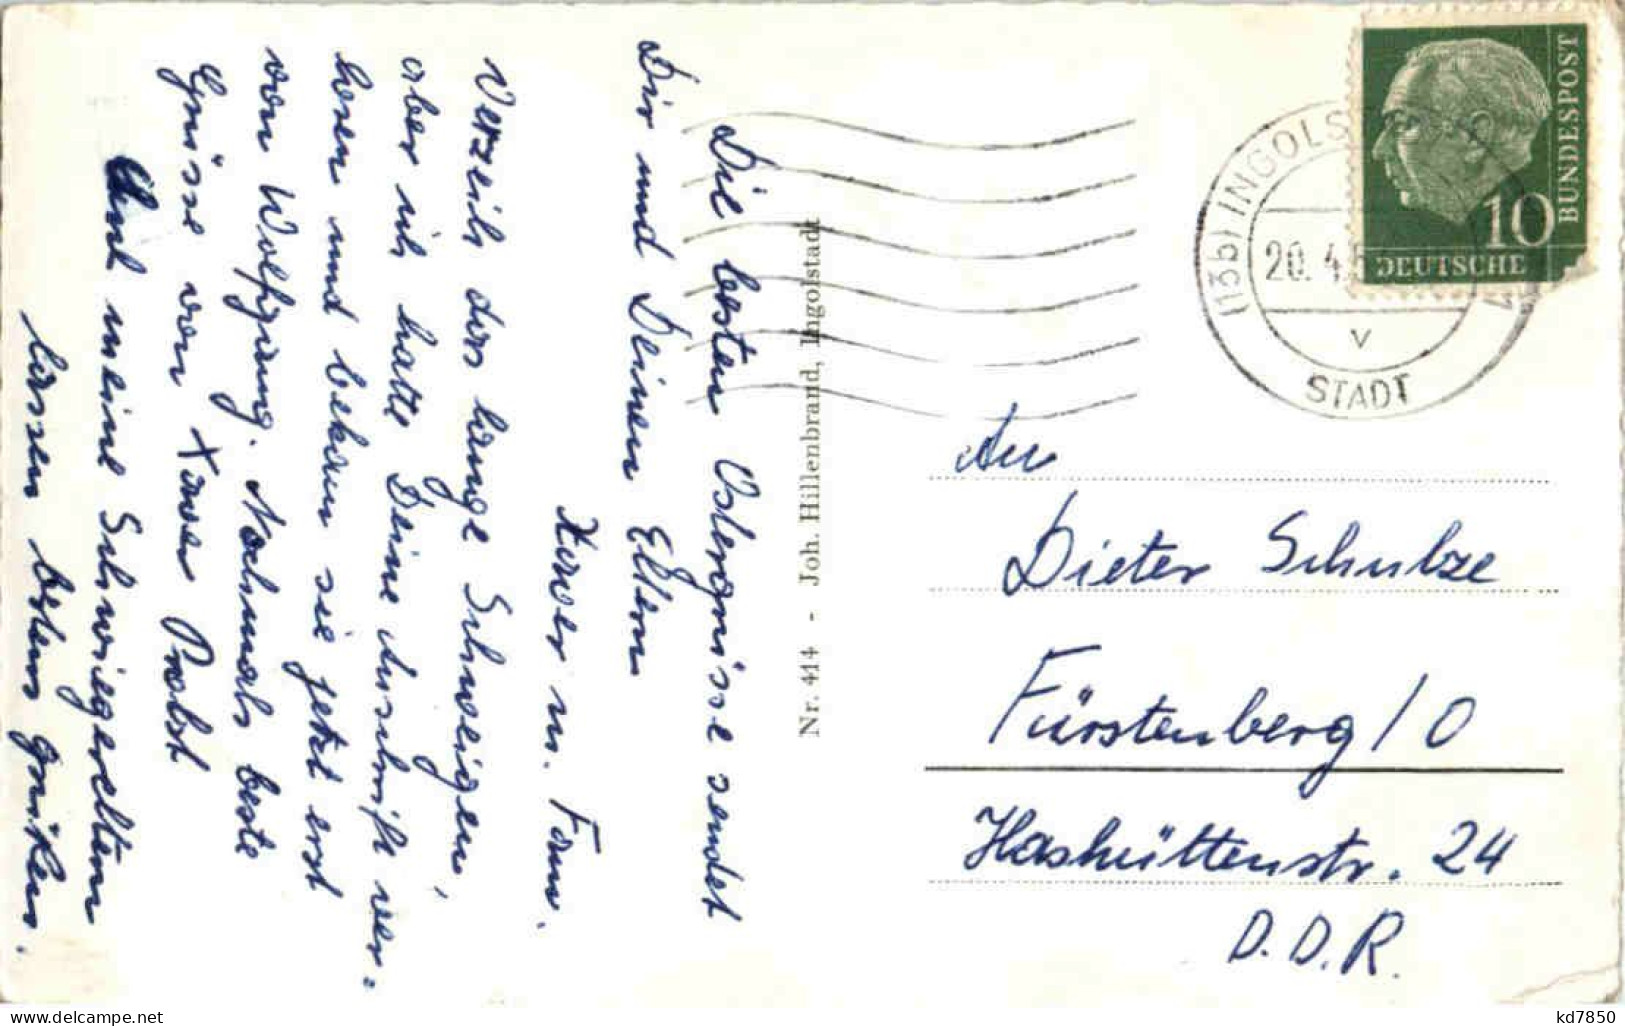 Die besten Ostergrüsse sendet
Dir und Deinen Eltern
Xaver u. Fam.
Verzeih das lange Schweigen,
aber ich hatte Deine Anschrift ver-
loren und bekam sie jetzt erst
von Wolfgang. Nochmals beste
Grüsse von Xaver Probst
Auch meine Schwiegereltern
lassen bestens grüßen.
Nr. 414 - Joh. Hillenbrand, Ingolstadt
(13b) INGOLS
20. 4.
v
STADT
10
DEUTSCHE
BUNDESPOST
An
Dieter Schulze
Fürstenberg / O
Hashüttenstr. 24
D.D.R.
www.delcampe.net
kd7850